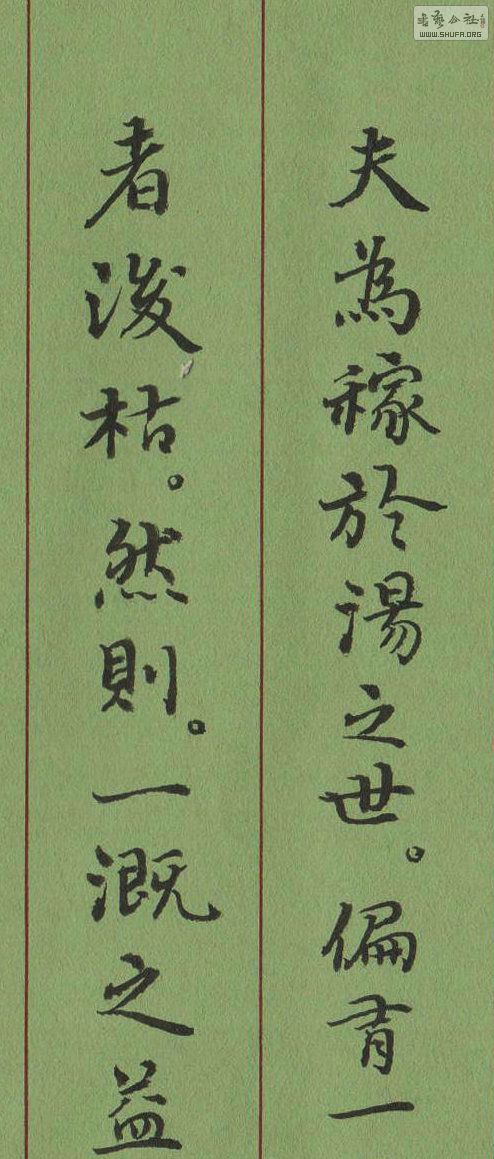 夫為稼於湯之世。偏有一
者後枯。然則。一溉之益
书艺公社
WWW.SHUFA.ORG